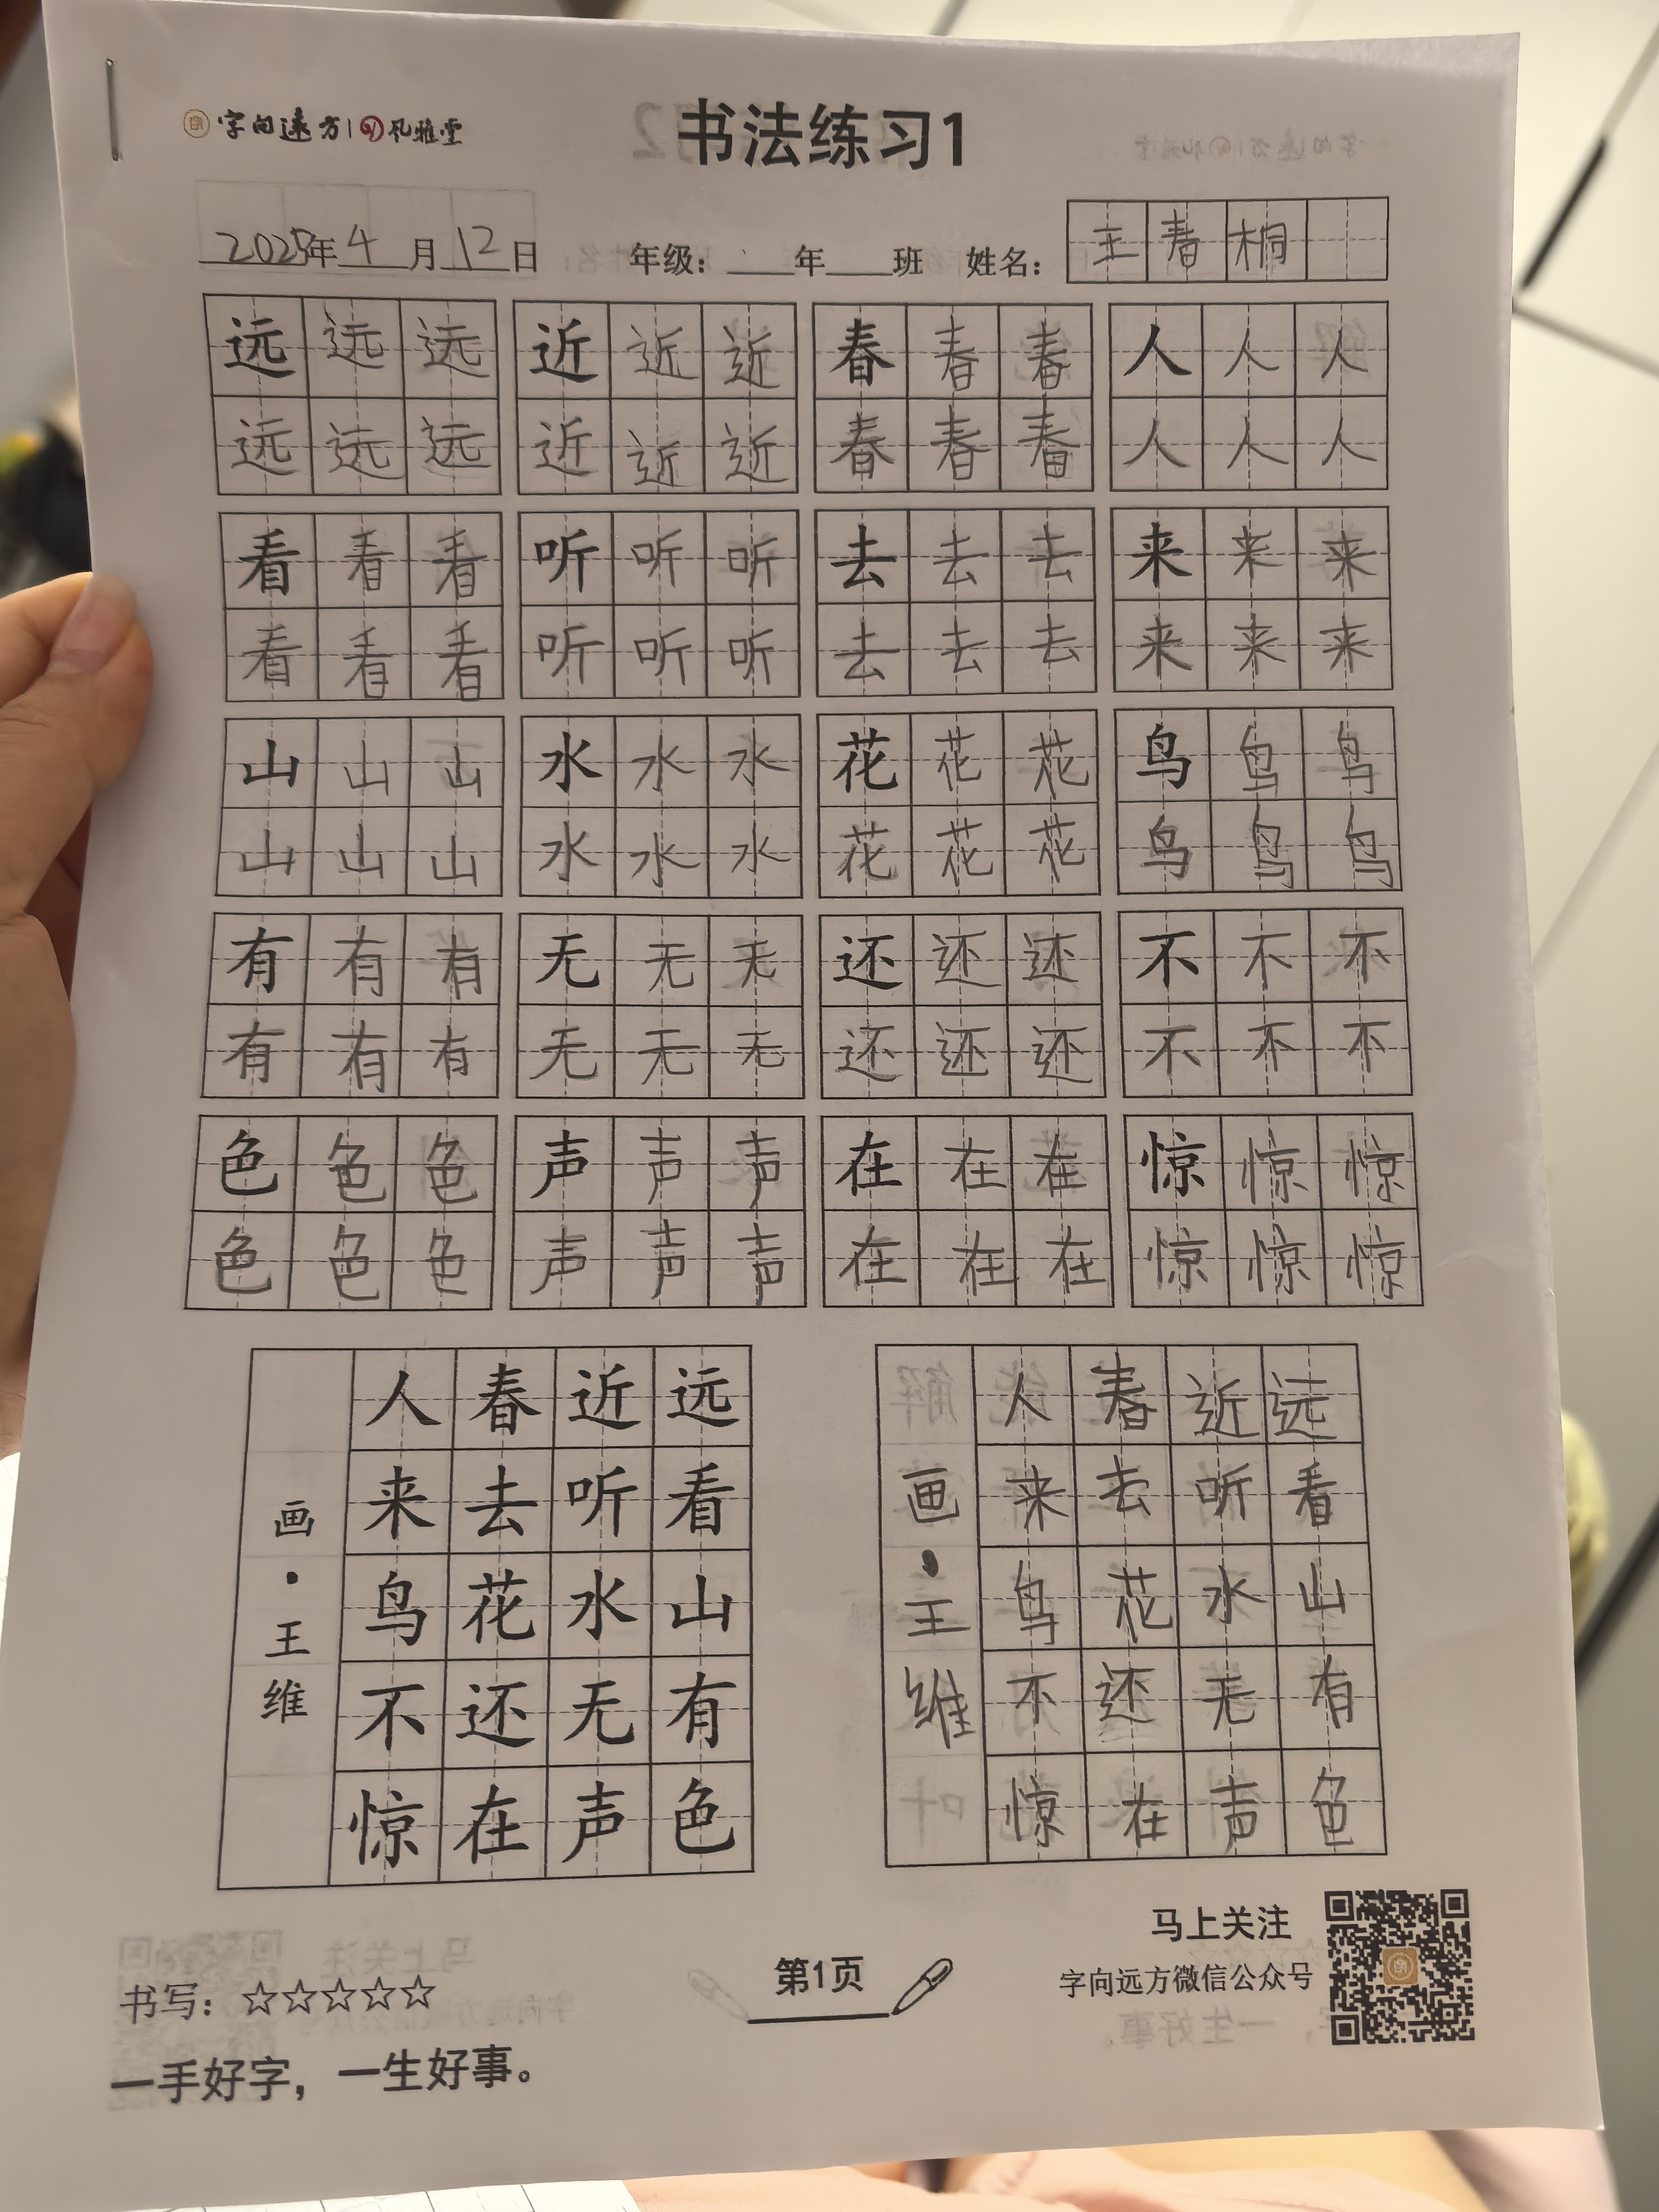 字向远方 | 孔雅堂
书法练习1
2025年4月12日 年级：____年____班 姓名：王春桐
远远远 近近近 春春春 人人人
远远远 近近近 春春春 人人人
看看看 听听听 去去去 来来来
看看看 听听听 去去去 来来来
山山山 水水水 花花花 鸟鸟鸟
山山山 水水水 花花花 鸟鸟鸟
有有有 无无无 还还还 不不不
有有有 无无无 还还还 不不不
色色色 声声声 在在在 惊惊惊
色色色 声声声 在在在 惊惊惊
远看山有色
近听水无声
春去花还在
人来鸟不惊
画·王维
远看山有色
近听水无声
春去花还在
人来鸟不惊
画·王维
书写：☆☆☆☆☆
一手好字，一生好事。
第1页
马上关注
字向远方微信公众号